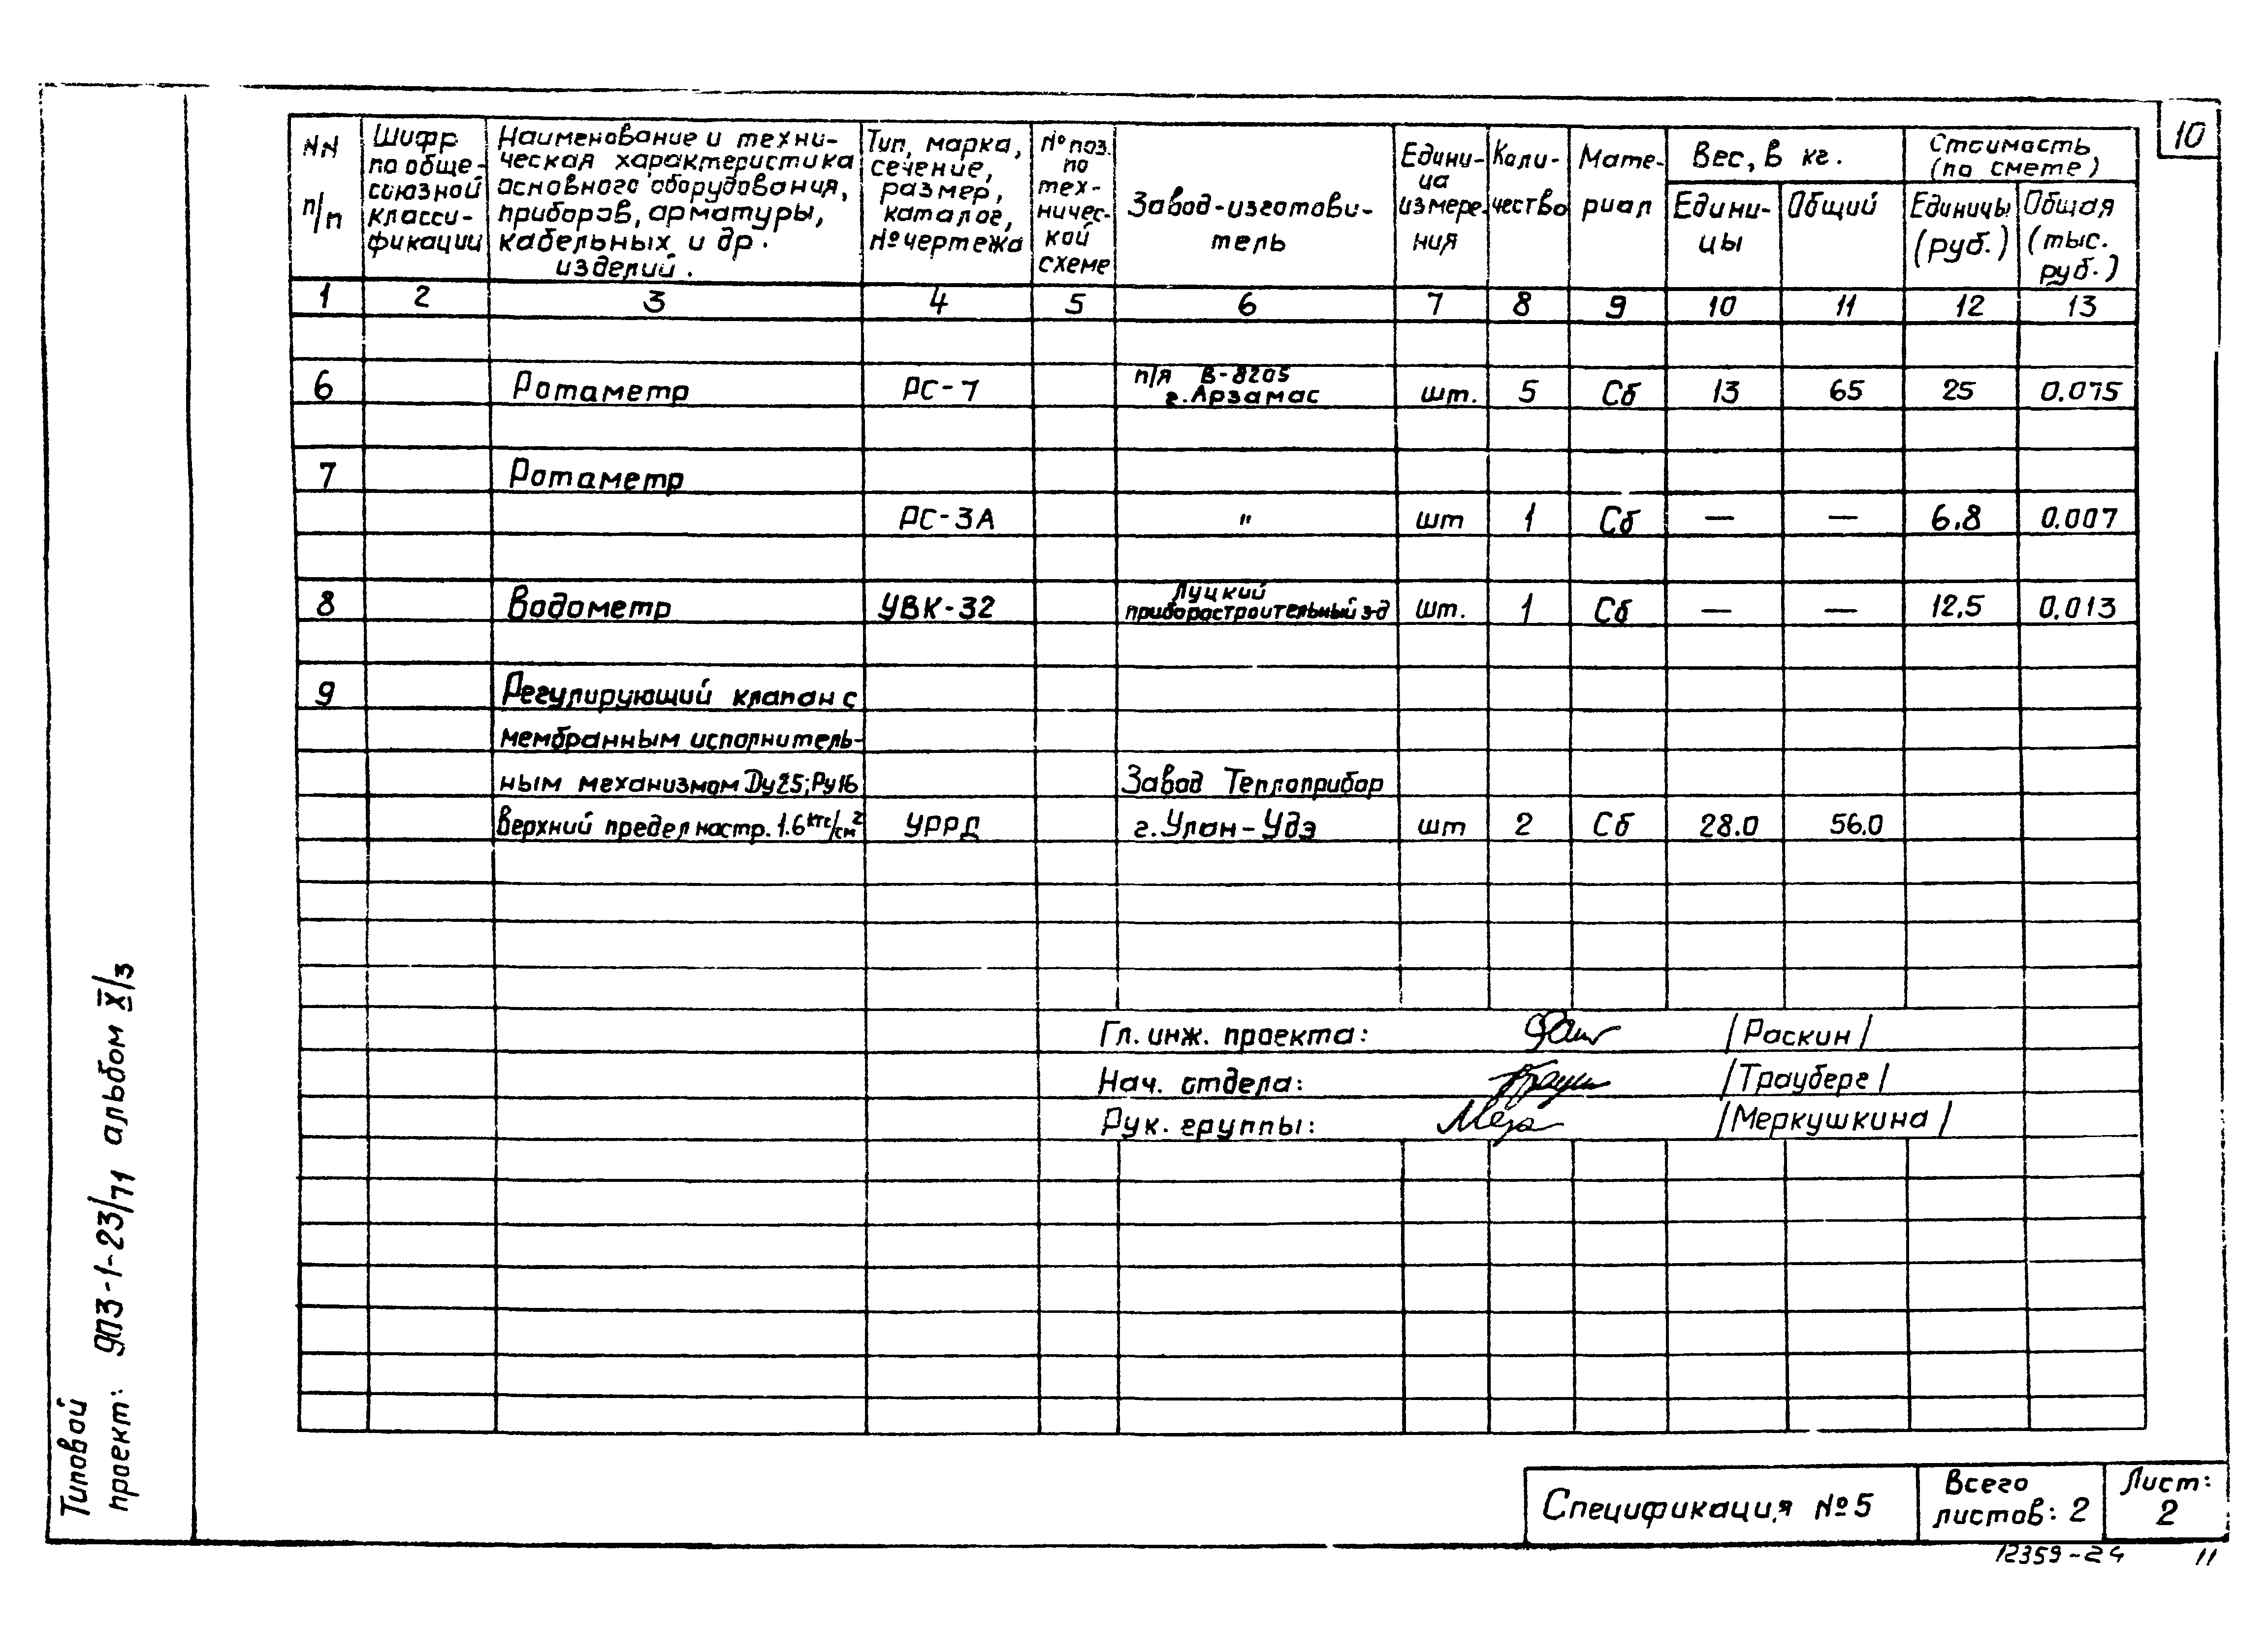 10
NN п/п
Шифр по обще-союзной класси-фикации
Наименование и техни-ческая характеристика основного оборудования, приборов, арматуры, кабельных и др. изделий.
Тип, марка, сечение, размер, каталог, № чертежа
№ поз. по тех-ничес-кой схеме
Завод-изготови-тель
Едини-ца измере-ния
Коли-чество
Мате-риал
Вес, в кг.
Едини-цы
Общий
Стоимость (по смете)
Единицы (руб.)
Общая (тыс. руб.)
1 2 3 4 5 6 7 8 9 10 11 12 13
п/я В-8205
6 Ротаметр РС-7 г. Арзамас шт. 5 Сб 13 65 25 0.075
7 Ротаметр
РС-3А " шт 1 Сб — — 6.8 0.007
Луцкий
8 Водометр УВК-32 приборостроительный з-д шт. 1 Сб — — 12.5 0.013
9 Регулирующий клапан с
мембранным исполнитель-
ным механизмом Dу25; Ру16 Завод Теплоприбор
Верхний предел настр. 1.6 кгс/см² УРРД г. Улан-Удэ шт 2 Сб 28.0 56.0
Гл. инж. проекта: /Раскин/
Нач. отдела: /Трауберг/
Рук. группы: /Меркушкина/
Типовой
проект: 9ПЗ-1-23/71 альбом X/3
Спецификация №5
Всего
листов: 2
Лист:
2
12359-24 11